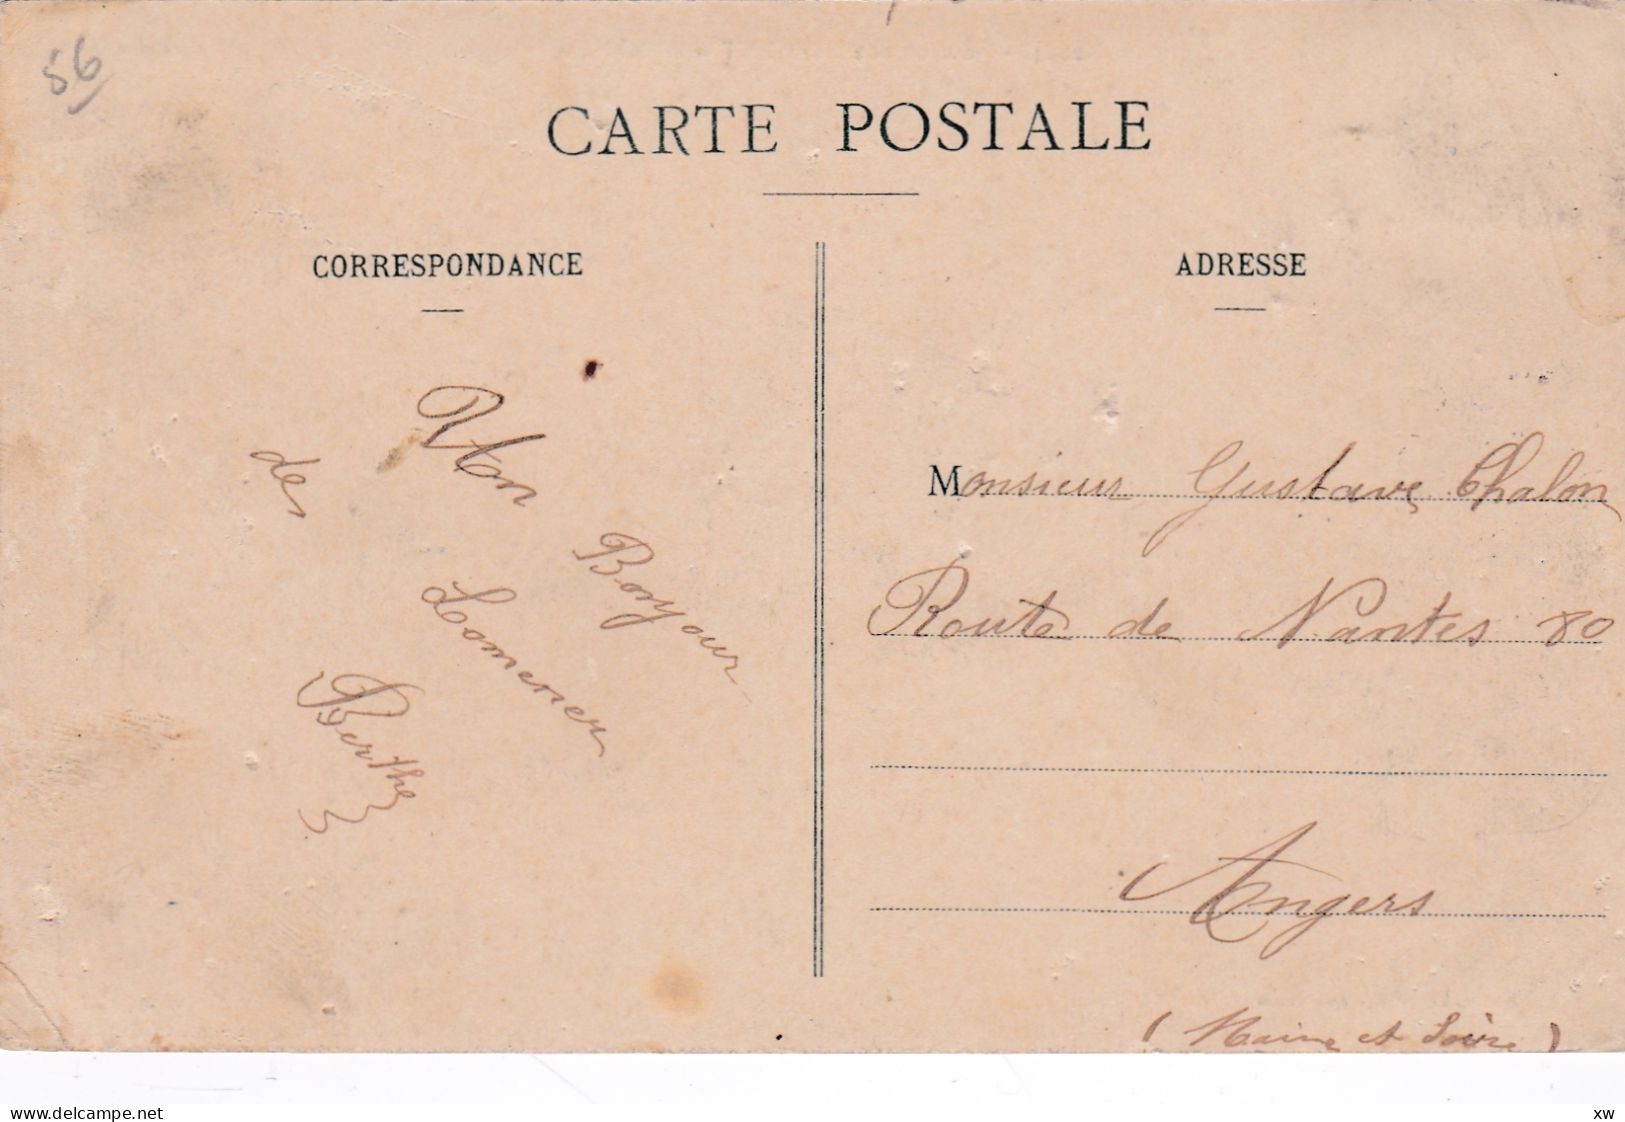 56
CARTE POSTALE
CORRESPONDANCE
ADRESSE
Bonjour
de Lomener
Berthe
Monsieur Gustave Chalon
Route de Nantes 80
Angers
(Maine et Loire)
delcampe.net
xw